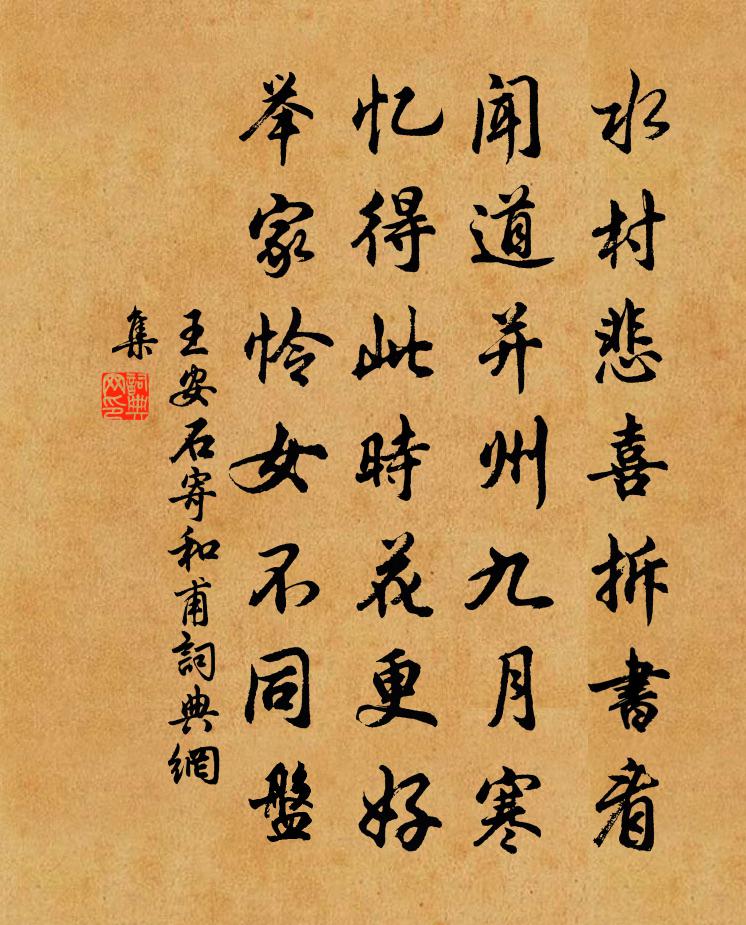 水村悲喜拆書看
闻道并州九月寒
忆得此時花更好
举家怜女不同盤
王安石寄和甫詞典網
集
詞典
网印